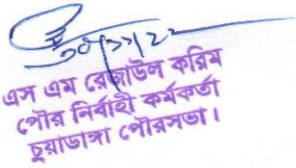 এস এম রেজাউল করিম
পৌর নির্বাহী কর্মকর্তা
চুয়াডাঙ্গা পৌরসভা।